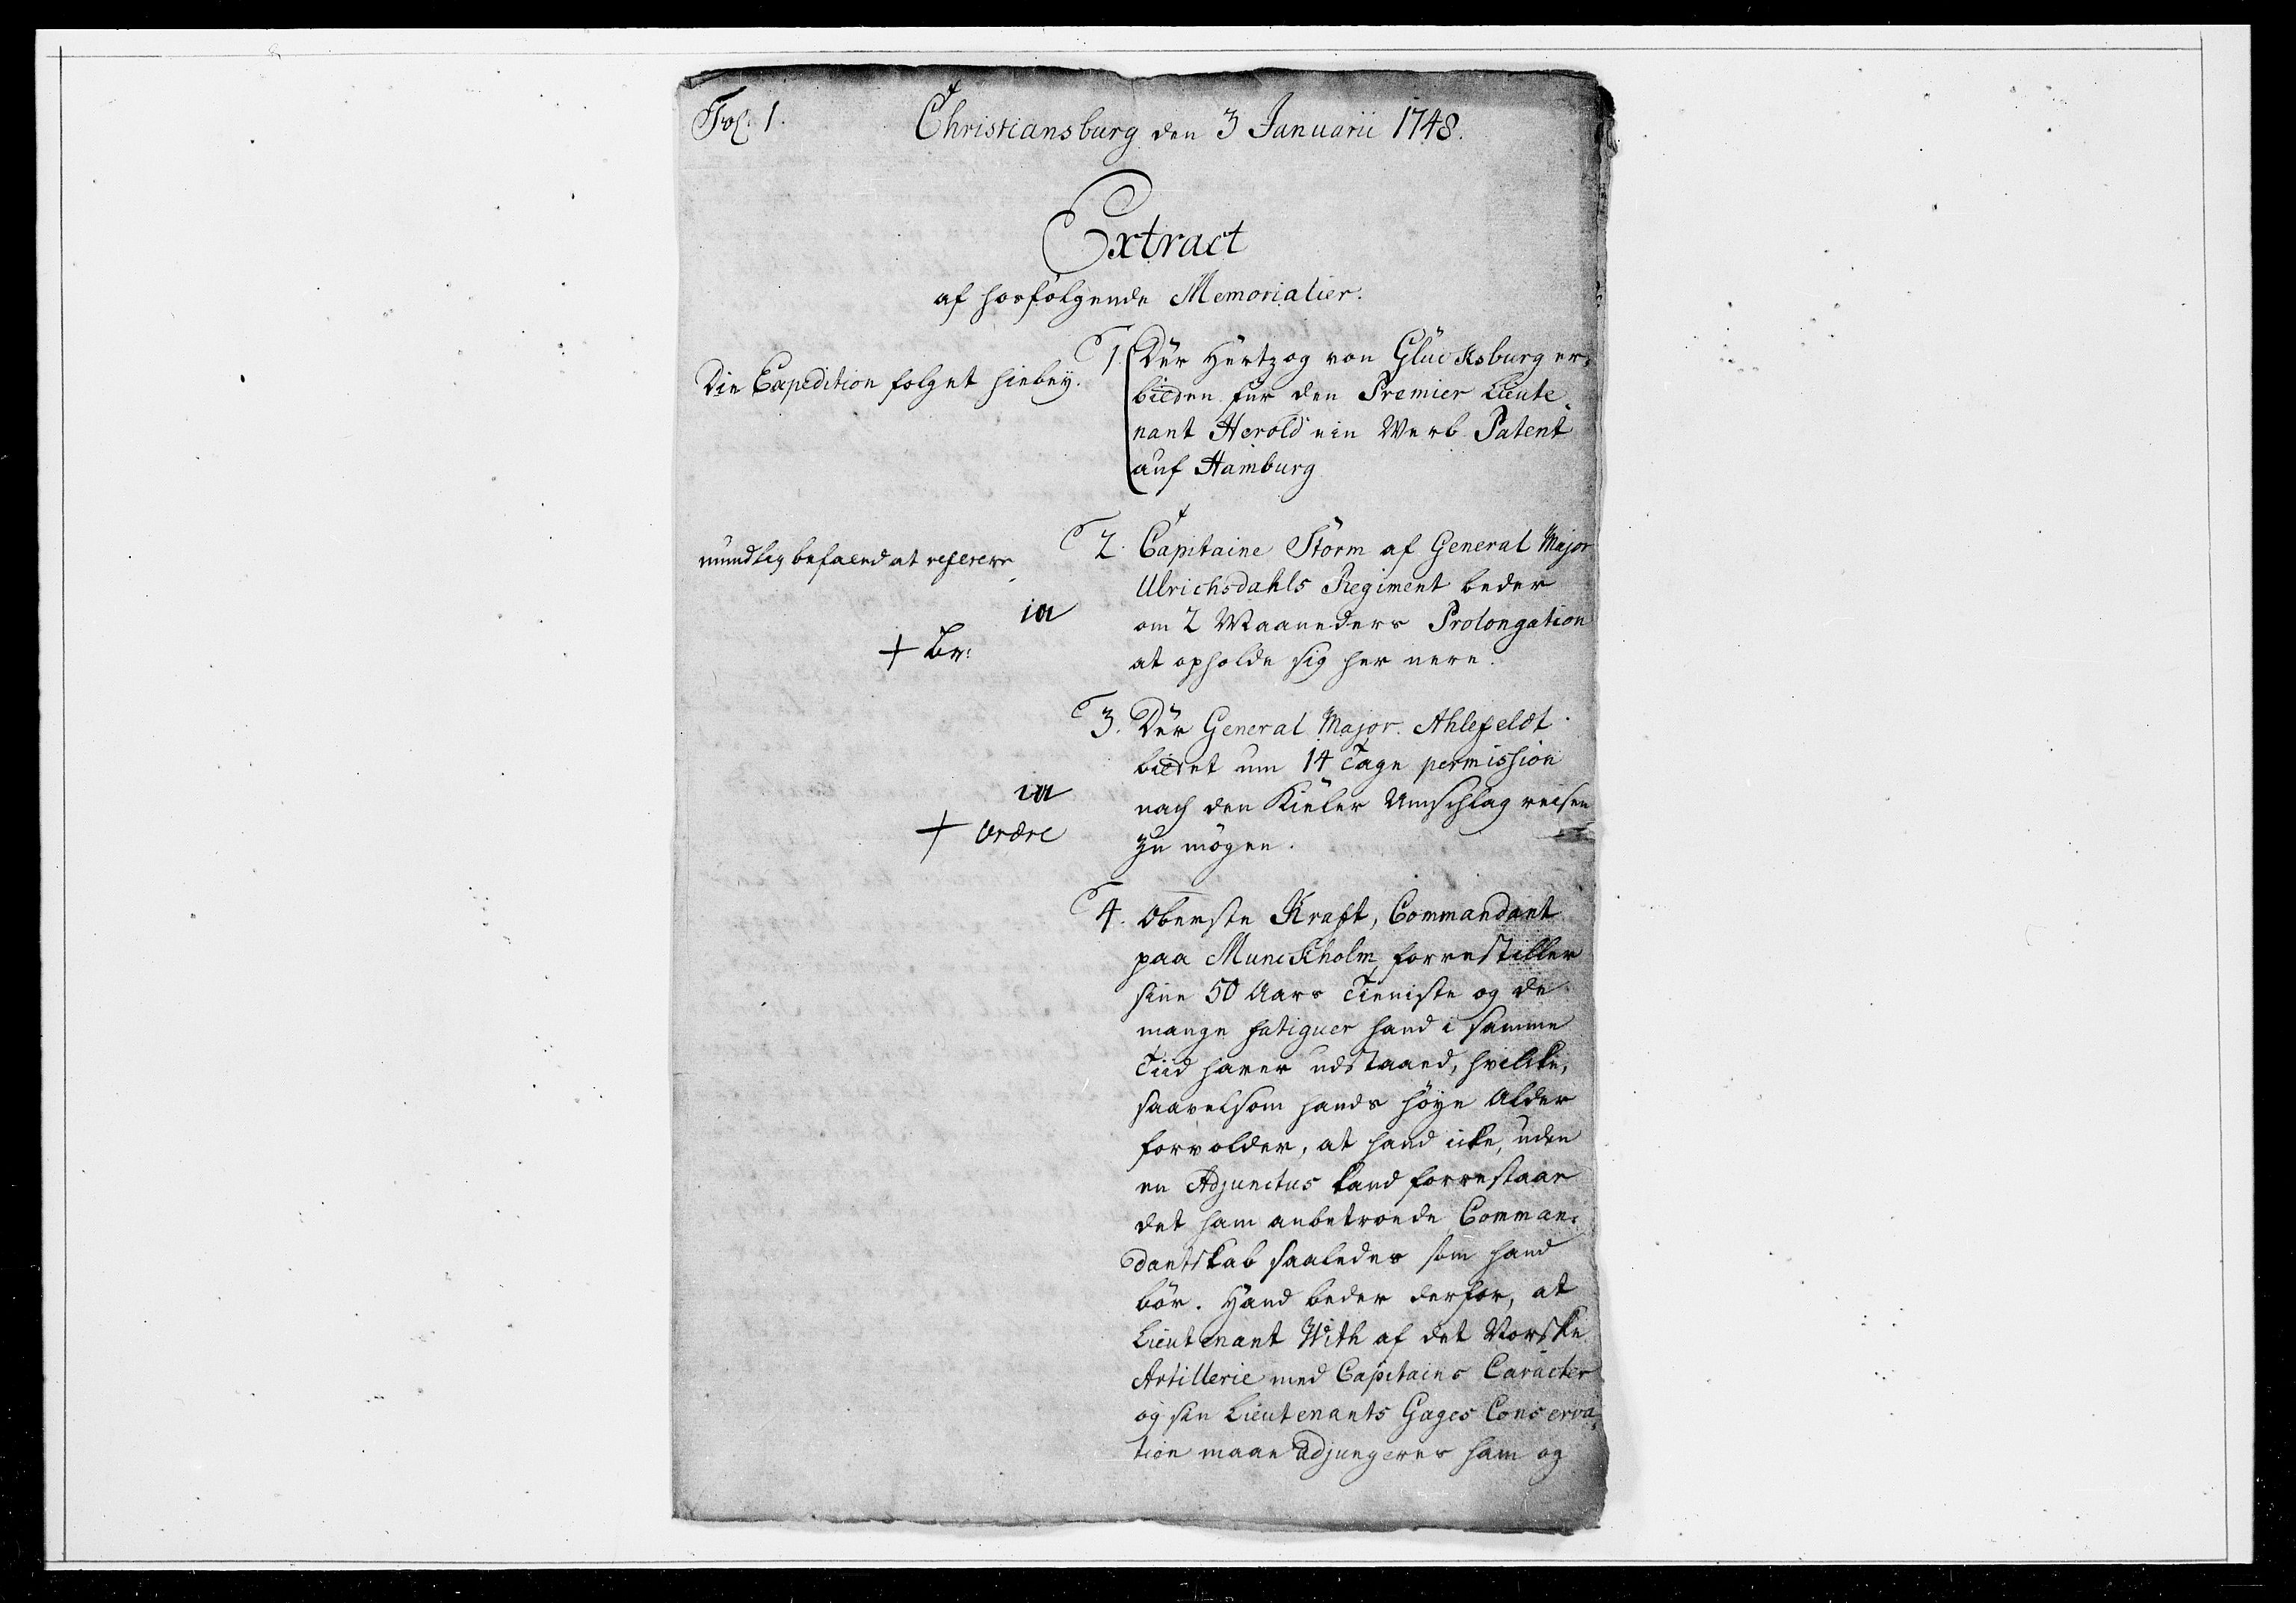 Fol: 1.
Christiansburg den 3 Januarii 1748.
Extract
af hosfølgende Memorialier.
Die Expedition folget hiebey.
1. Der Hertzog von Glücksburg er-
bitten für den Premier Lieute-
nant Herold ein Werb Patent
auf Hamburg
mundtlig befalend at referere
ia
+ Br:
2. Capitaine Storm af General Major
Ulrichsdahls Regiment beder
om 2 Maaneders Prolongation
at opholde sig her nere.
ia
+ Ordre
3. Der General Major Ahlefeldt
bittet um 14 Tage permission
nach den Kieler Umschlag reisen
zu mögen.
4. Oberste Kraft, Commandant
paa Munckholm, forrestiller
sine 50 Aars Tieniste og de
mange fatiguer hand i samme
Tiid haver udstaaed, hvilke,
saavelsom hands høye Alder
forvolder, at hand icke, uden
en Adjunctus kand forrestaae
det ham anbetroede Comman-
dantskab saaledes som hand
bör. Hand beder derfor, at
Lieutenant With af det Norske
Artillerie med Capitains Caracter
og sin Lieutenants Gages Conserva-
tion maae adjungeres ham og